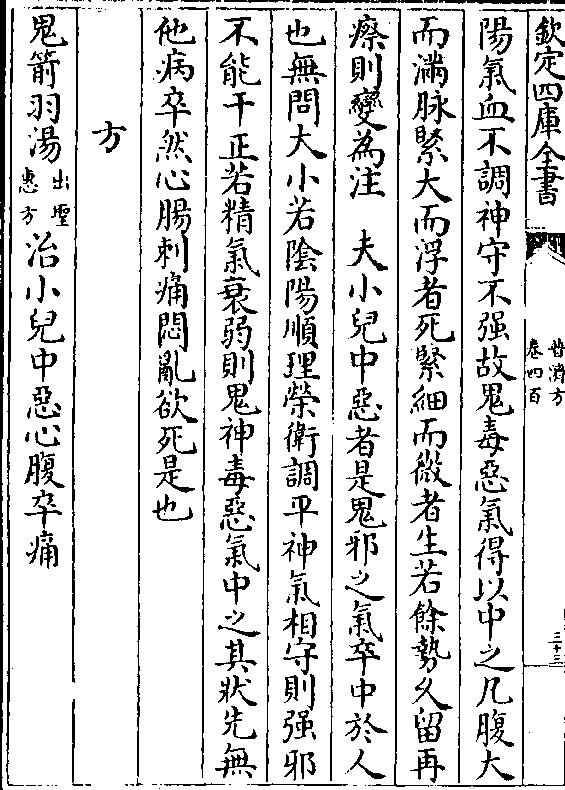 欽定四庫全書
普濟方
卷四百
三十三
陽氣血不調神守不强故鬼毒惡氣得以中之凡腹大
而滿脉緊大而浮者死緊細而微者生若餘勢久留再
瘵則變為注　夫小兒中惡者是鬼邪之氣卒中於人
也無問大小若陰陽順理榮衛調平神氣相守則强邪
不能干正若精氣衰弱則鬼神毒惡氣中之其狀先無
他病卒然心腸刺痛悶亂欲死是也
方
鬼箭羽湯出聖惠方治小兒中惡心腹卒痛